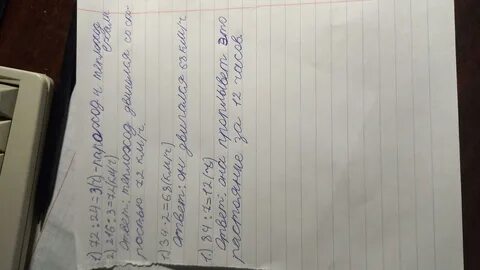 1) 72:24=3(ч)-пароход и теплоход ехали
2) 216:3=72(км/ч)
Ответ: теплоход двигался со ско-
ростью 72 км/ч.
1) 34·2=68(км/ч)
Ответ: он двигался 68 км/ч
1) 84:7=12(ч)
Ответ: она проплывёт это
растояние за 12 часов